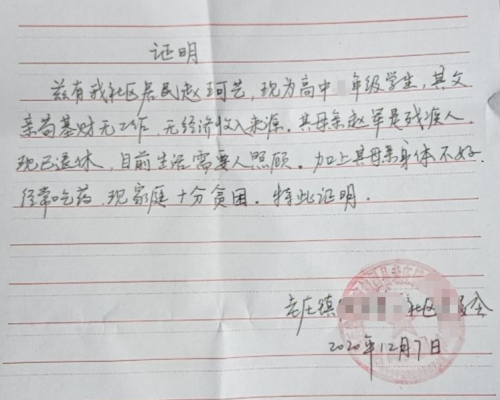 证明
兹有我社区居民赵珂艺，现为高中 年级学生，其父
亲苟基财无工作，无经济收入来源。其母亲赵军是残疾人，
现已退休，目前生活需要人照顾。加上其母亲身体不好，
经常吃药，现家庭十分贫困。特此证明。
老庄镇 社区 委会
2020年12月7日